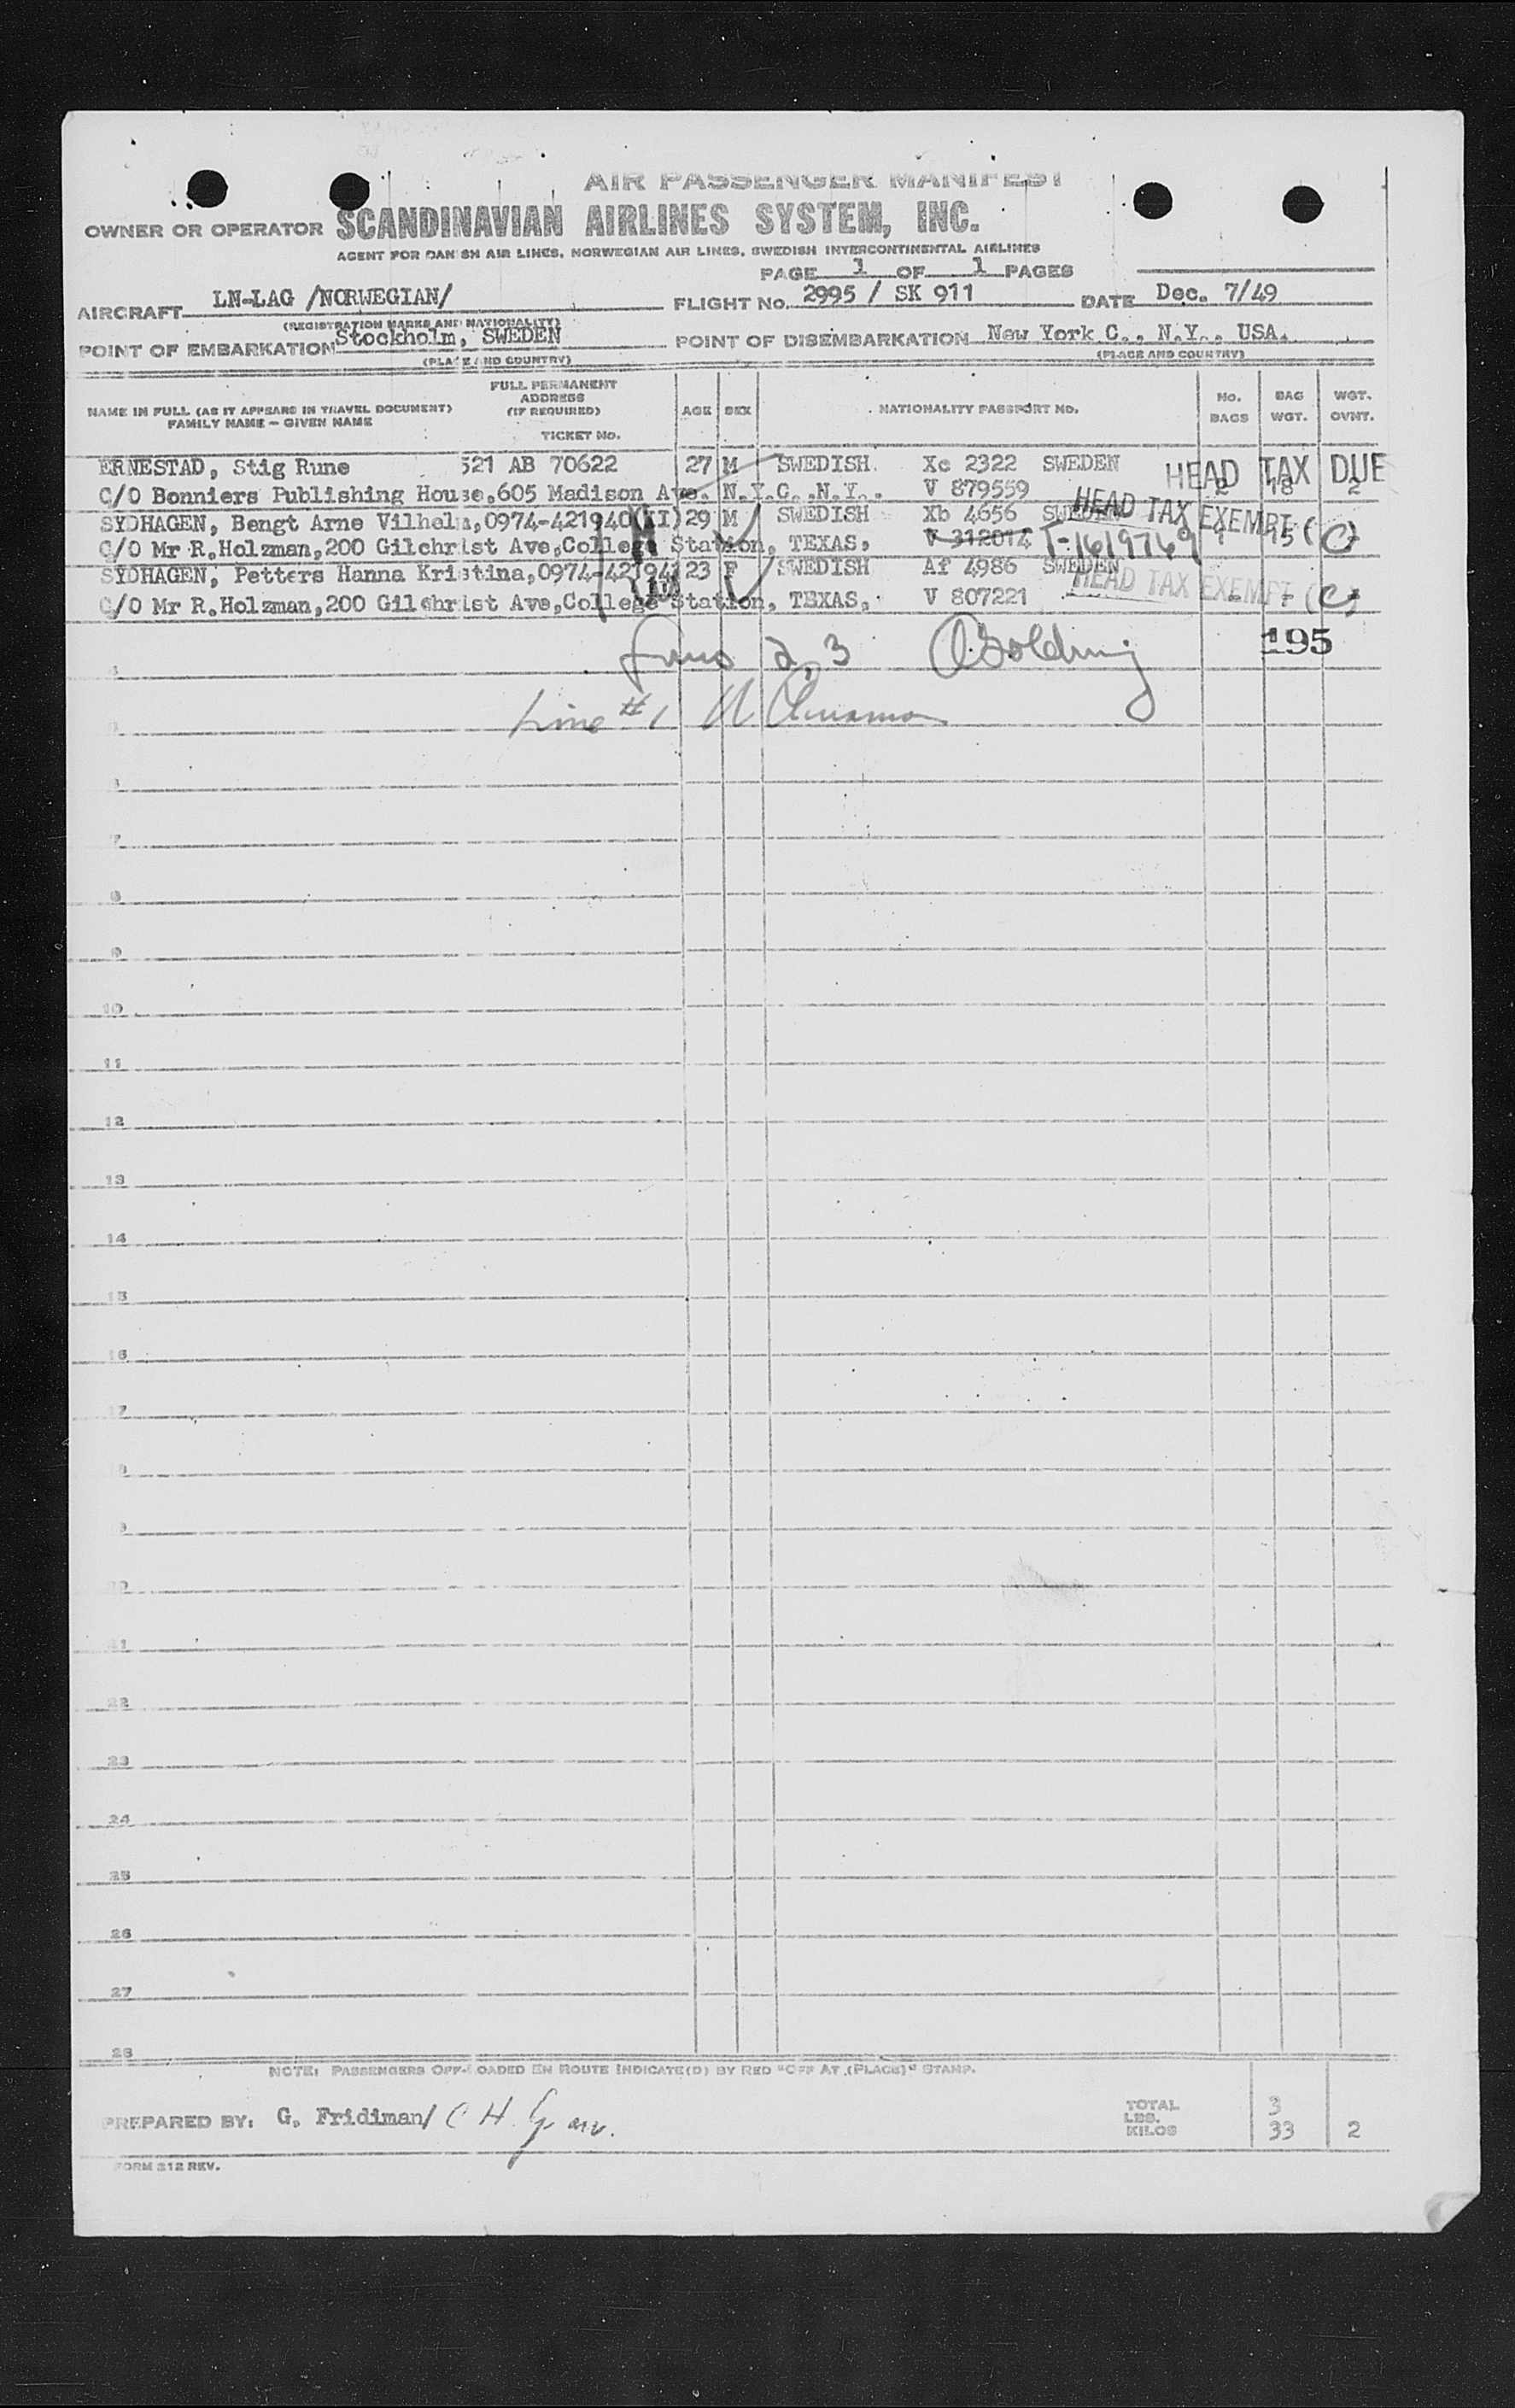 AIR PASSENGER MANIFEST
OWNER OR OPERATOR SCANDINAVIAN AIRLINES SYSTEM, INC.
AGENT FOR DANISH AIR LINES, NORWEGIAN AIR LINES, SWEDISH INTERCONTINENTAL AIRLINES
PAGE 1 OF 1 PAGES
AIRCRAFT LN-LAG /NORWEGIAN/ FLIGHT No. 2995 / SK 911 DATE Dec. 7/49
(REGISTRATION MARKS AND NATIONALITY)
POINT OF EMBARKATION Stockholm, SWEDEN POINT OF DISEMBARKATION New York C., N.Y., USA.
(PLACE AND COUNTRY) (PLACE AND COUNTRY)
NAME IN FULL (AS IT APPEARS IN TRAVEL DOCUMENT) FAMILY NAME – GIVEN NAME FULL PERMANENT ADDRESS (IF REQUIRED) TICKET No. AGE SEX NATIONALITY PASSPORT NO. No. BAGS BAG WGT. WGT. OVNT.
ERNESTAD, Stig Rune 521 AB 70622 27 M SWEDISH Xc 2322 SWEDEN HEAD TAX DUE
C/O Bonniers Publishing House,605 Madison Ave. N.Y.C.,N.Y.. V 879559 2 18 2
SYDHAGEN, Bengt Arne Vilhelm,0974-421940(II) 29 M SWEDISH Xb 4656 SWEDEN HEAD TAX EXEMPT (C)
C/O Mr R.Holzman,200 Gilchrist Ave,College Station, TEXAS, V 312014 T-1619769 1 15 -
SYDHAGEN, Petters Hanna Kristina,0974-421941 23 F SWEDISH Af 4986 SWEDEN HEAD TAX EXEMPT (C)
(II)
C/O Mr R.Holzman,200 Gilchrist Ave,College Station, TEXAS, V 807221 - - -
2, 3 195
Line #1
7
9
10
11
12
13
14
15
16
17
22
23
24
25
26
27
28
NOTE: PASSENGERS OFF-LOADED EN ROUTE INDICATE(D) BY RED "OFF AT (PLACE)" STAMP.
PREPARED BY: G. Fridiman/ TOTAL 3
LBS.
KILOS 33 2
FORM 212 REV.